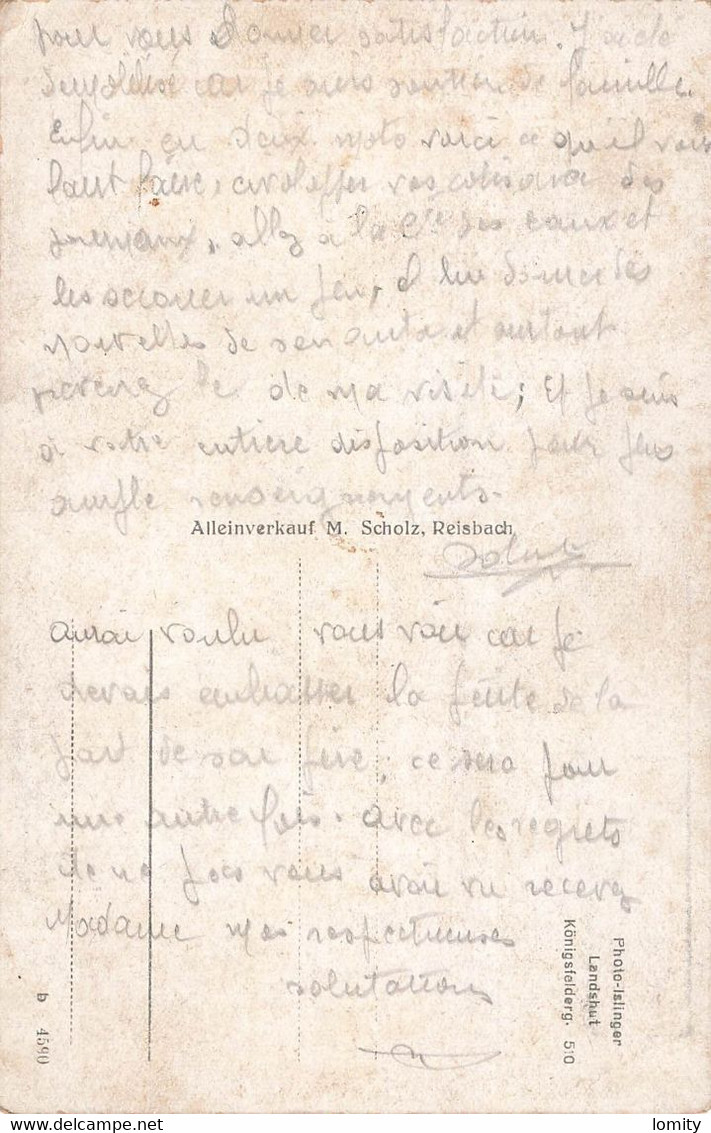 pour vous donner satisfaction. J'ai été
car je suis soutien de famille.
Enfin en deux mots voici ce qu'il vous
faut faire, développer vos des
journaux, allez à la Cie des eaux et
les secouer un peu, il lui donner des
nouvelles de sa santé et surtout
prevenez le de ma visite; Et je suis
à votre entière disposition pour plus
ample renseignements.
Alleinverkauf M. Scholz, Reisbach
Salut
aurai voulu vous voir car je
devais embrasser la petite de la
part de son père, ce sera pour
une autre fois. avec les regrets
de ne pas vous avoir vu recevez
Madame mes respectueuses
salutations
Photo-Islinger
Landshut
Königsfelderg. 510
b 4590
lomity